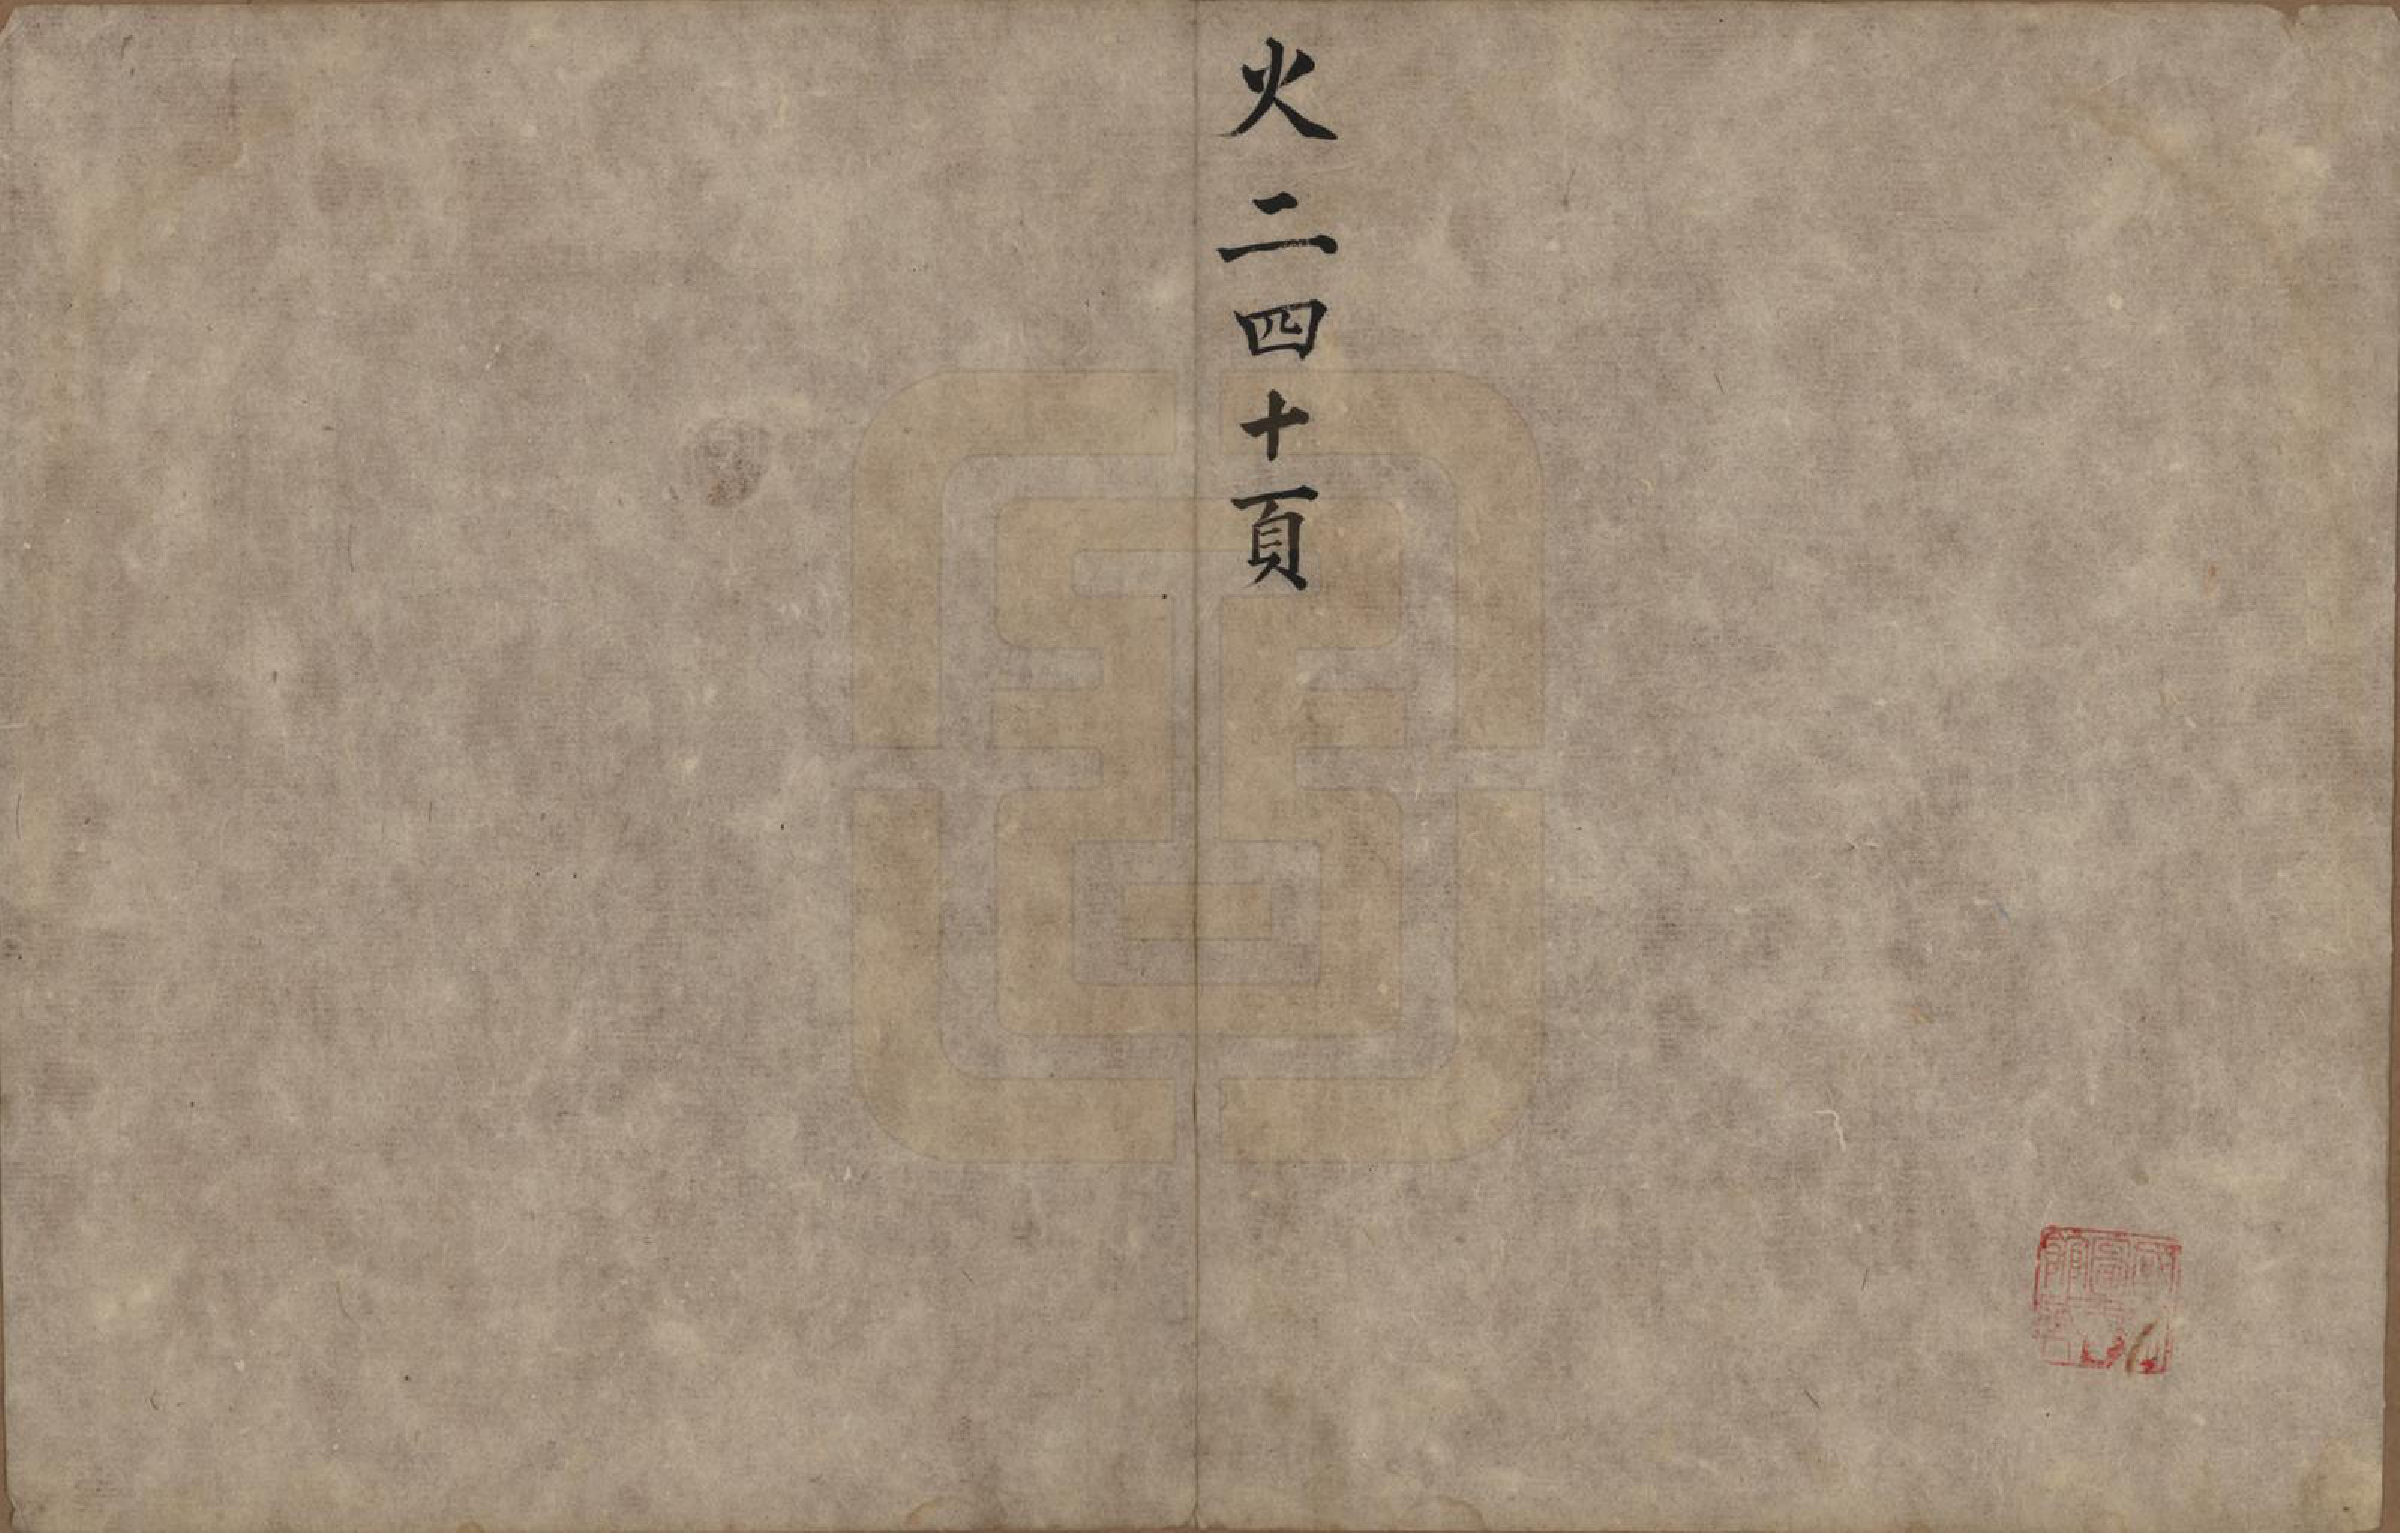 火二四十頁